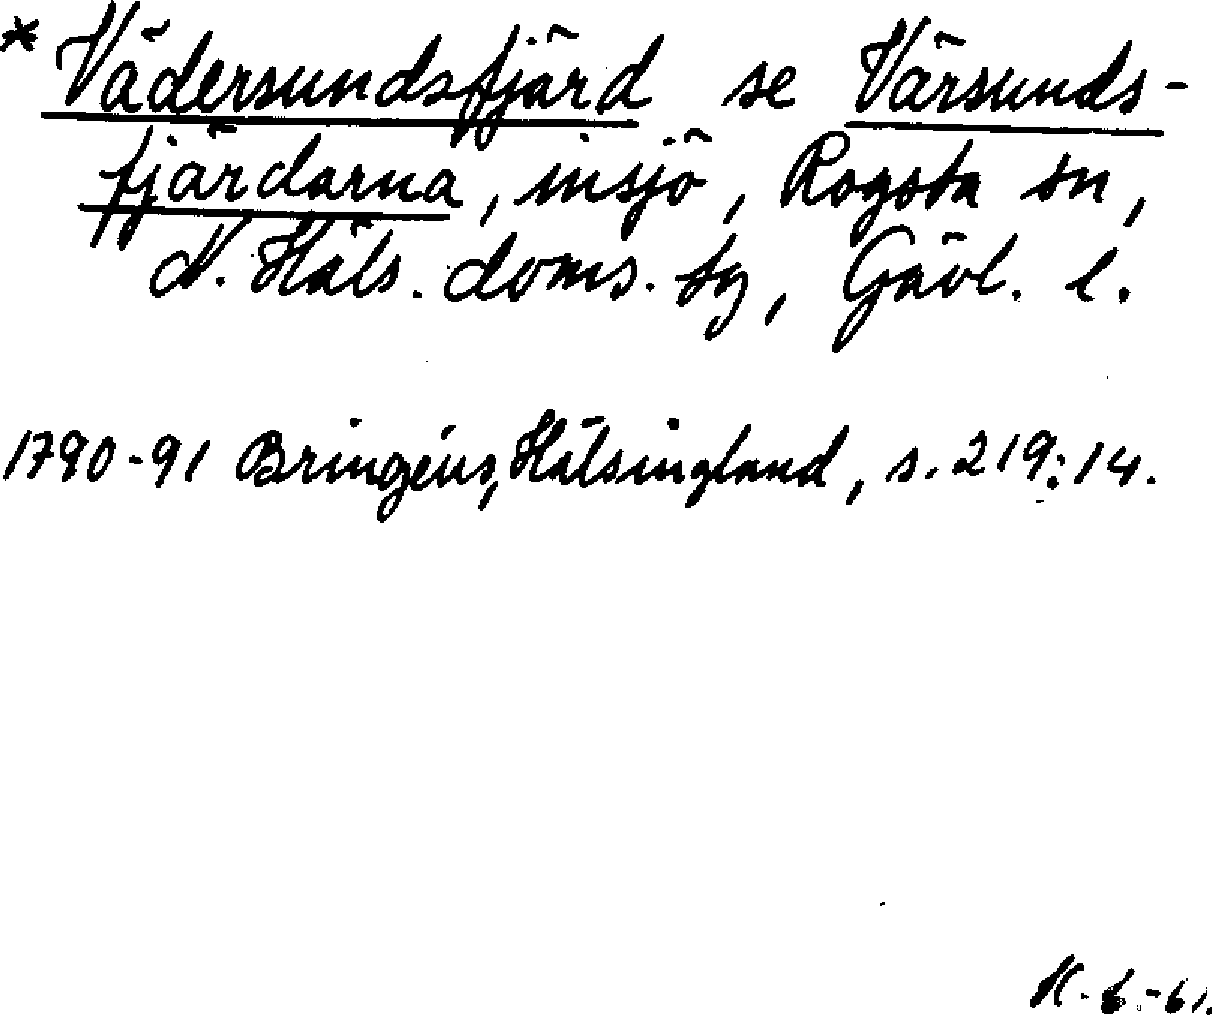 * Vädersundsfjärd se Värsunds-
fjärdarna, insjö, Rogsta sn,
N. Häls. doms. sg, Gävl. l.
1790-91 Bringéus, Hälsingland, s. 219:14.